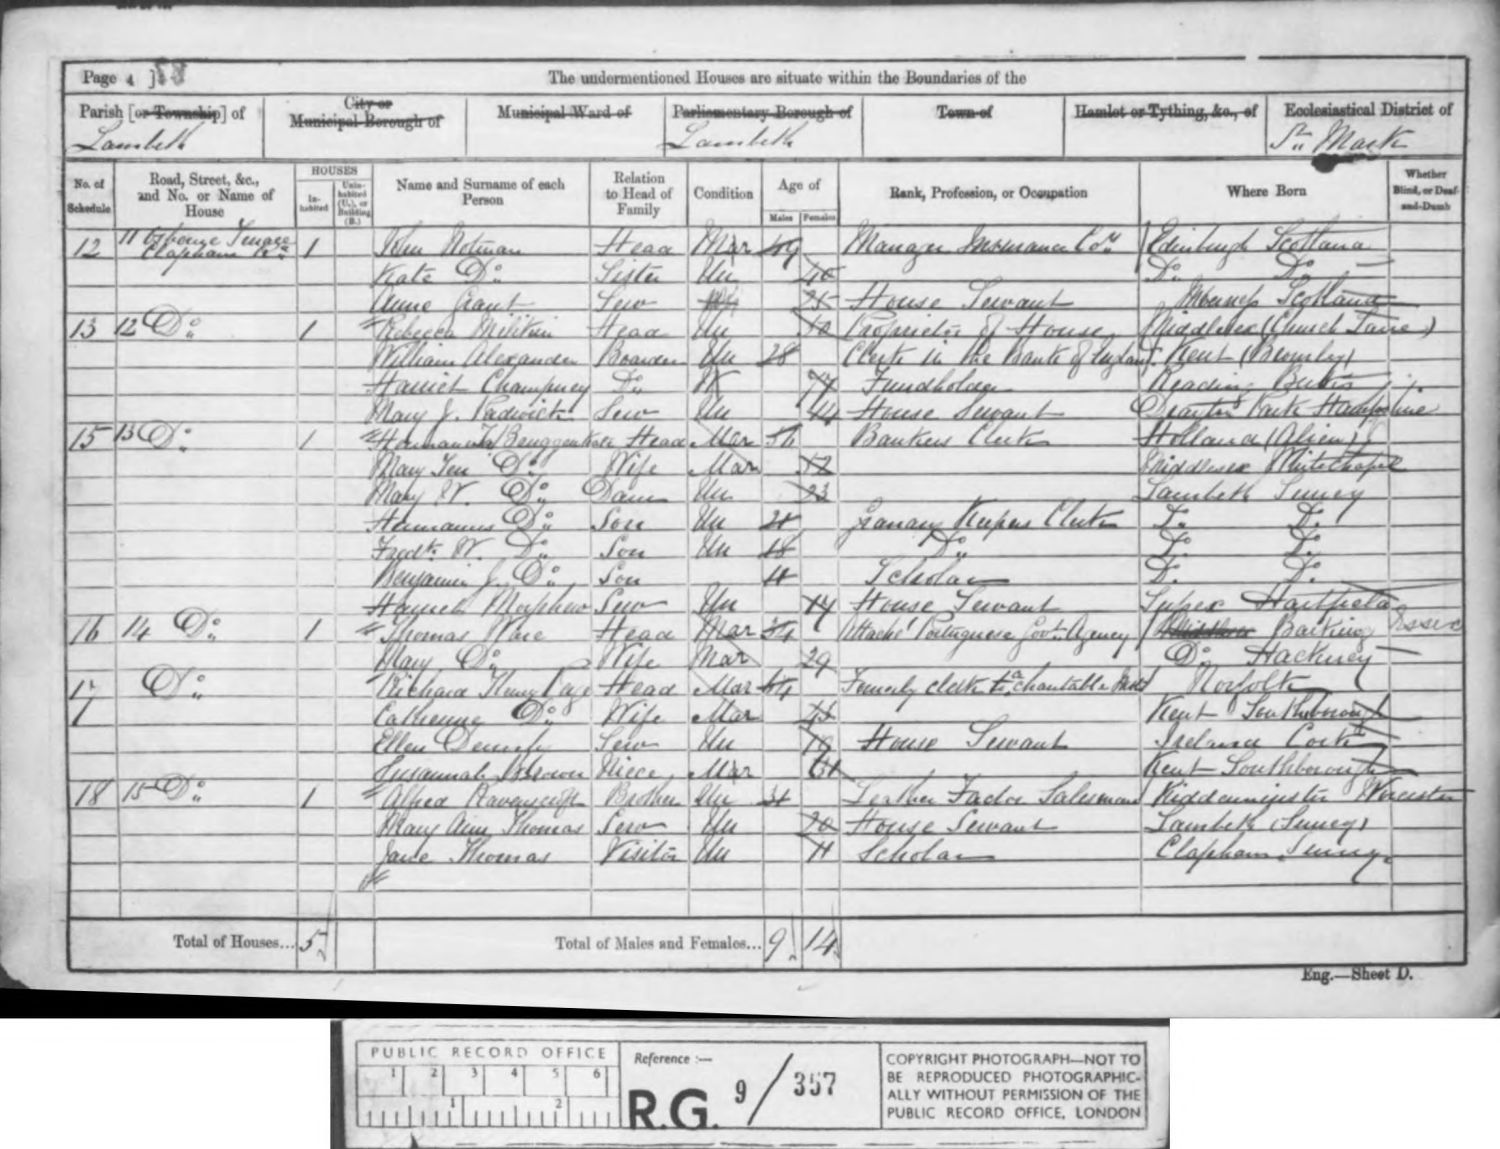 Page 4 ] 58
The undermentioned Houses are situate within the Boundaries of the
Parish [or Township] of
City or Municipal Borough of
Municipal Ward of
Parliamentary Borough of
Town of
Hamlet or Tything, &c., of
Ecclesiastical District of
Lambeth Lambeth St. Mark
No. of Schedule
Road, Street, &c., and No. or Name of House
HOUSES
In-habited
Unin-habited (U.), or Building (B.)
Name and Surname of each Person
Relation to Head of Family
Condition
Age of
Males Females
Rank, Profession, or Occupation
Where Born
Whether Blind, or Deaf-and-Dumb
12 11 Terrace Clapham Rd 1 John Notman Head Mar 49 Manager Insurance Coy Edinburgh Scotland
Kate Do. Sister Un 40 Do. Do.
Anne Grant Serv 25 House Servant Inverness Scotland
13 12 Do. 1 Rebecca Head Un Proprietor of House Middlesex (Church Lane)
William Alexander Boarder Un 28 Clerk in the Bank of England Kent (Bromley)
Harriet Champney Do. W 74 Fundholder Reading Berks
Mary J. Padwick Serv Un 44 House Servant Drayton Park Hampshire
15 13 Do. 1 Hermanus Ten Bruggenkate Head Mar 54 Bankers Clerk Holland (Alien)
Mary Ten Do. Wife Mar 52 Middlesex Whitechapel
Mary W. Do. Daur Un 23 Lambeth Surrey
Hermanus Do. Son Un 21 Granary Keepers Clerk Do. Do.
Fredk. W. Do. Son Un 18 Do. Do. Do.
Benjamin J. Do. Son 11 Scholar Do. Do.
Harriet Morphew Serv Un 14 House Servant Sussex Hartfield
16 14 Do. 1 Thomas Ware Head Mar 34 Attaché Portuguese Govt. Agency Middlesex Barking Essex
Mary Do. Wife Mar 29 Do. Hackney
17 Do. Richard Henry Page Head Mar 64 Formerly clerk to a charitable Norfolk
Catherine Do. Wife Mar 45 Kent Southborough
Ellen Serv Un 19 House Servant Ireland Cork
Susannah Brown Niece Mar Kent Southborough
18 15 Do. 1 Alfred Ravenscroft Brother Un 31 Leather Factor Salesman Kidderminster Worcester
Mary Ann Thomas Serv Un 20 House Servant Lambeth (Surrey)
Jane Thomas Visitor Un 11 Scholar Clapham Surrey
Total of Houses... 5 Total of Males and Females... 9 14
Eng.—Sheet D.
PUBLIC RECORD OFFICE
1 2 3 4 5 6
1 2
Reference :—
R.G. 9/357
COPYRIGHT PHOTOGRAPH—NOT TO
BE REPRODUCED PHOTOGRAPHIC-
ALLY WITHOUT PERMISSION OF THE
PUBLIC RECORD OFFICE, LONDON